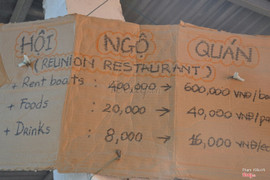 HỘI NGỘ QUÁN
(REUNION RESTAURANT)
+ Rent boats : 400,000 → 600,000 VNĐ/
+ Foods : 20,000 → 40,000 VNĐ/
+ Drinks : 8,000 → 16,000 VNĐ/